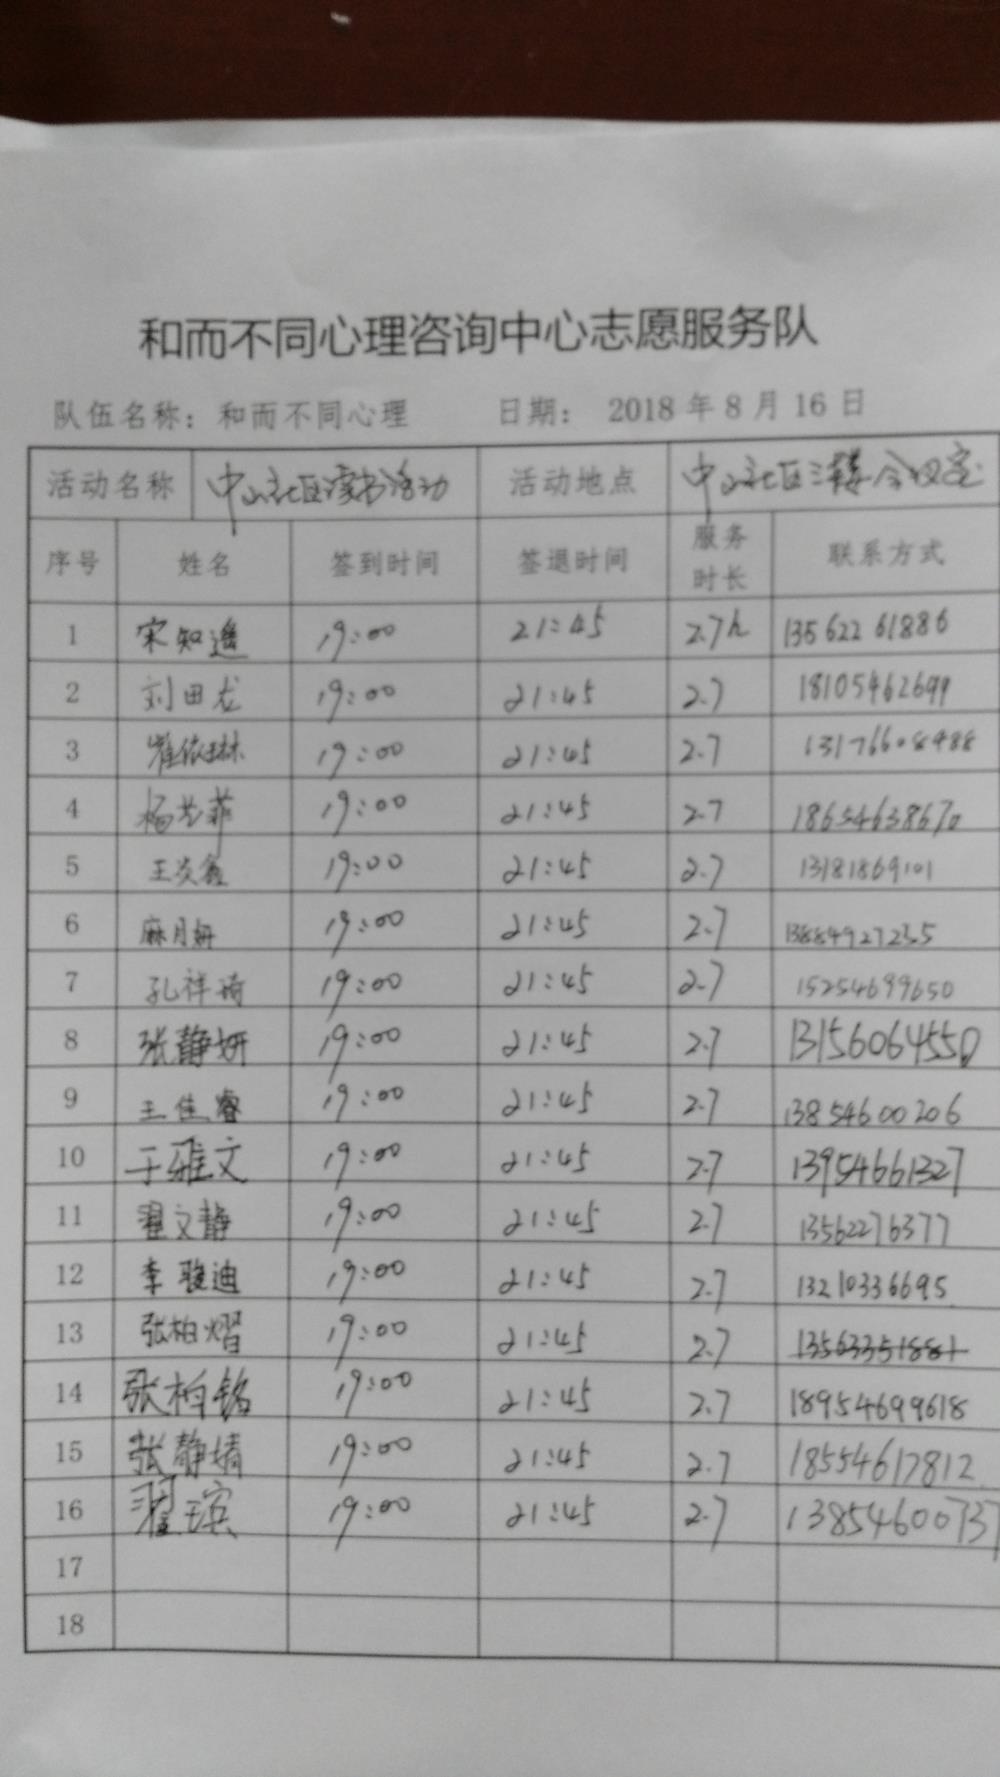 和而不同心理咨询中心志愿服务队
队伍名称：和而不同心理 日期： 2018 年 8 月 16 日
活动名称 中山社区读书活动 活动地点 中山社区三楼会议室
序号 姓名 签到时间 签退时间 服务时长 联系方式
1 宋知遥 19:00 21:45 2.7h 13562261886
2 刘田龙 19:00 21:45 2.7 18105462699
3 崔依琳 19:00 21:45 2.7 13176608488
4 杨艺菲 19:00 21:45 2.7 18654638670
5 王炎鑫 19:00 21:45 2.7 13181869101
6 麻月妍 19:00 21:45 2.7 13884927235
7 孔祥琦 19:00 21:45 2.7 15254699650
8 张静妍 19:00 21:45 2.7 13156064550
9 王佳睿 19:00 21:45 2.7 13854600206
10 于雅文 19:00 21:45 2.7 13954661327
11 翟文静 19:00 21:45 2.7 13562276377
12 李骏迪 19:00 21:45 2.7 13210336695
13 张柏熠 19:00 21:45 2.7 13563351881
14 张柏铭 19:00 21:45 2.7 18954699618
15 张静婧 19:00 21:45 2.7 18554617812
16 翟瑸 19:00 21:45 2.7 13854600737
17
18